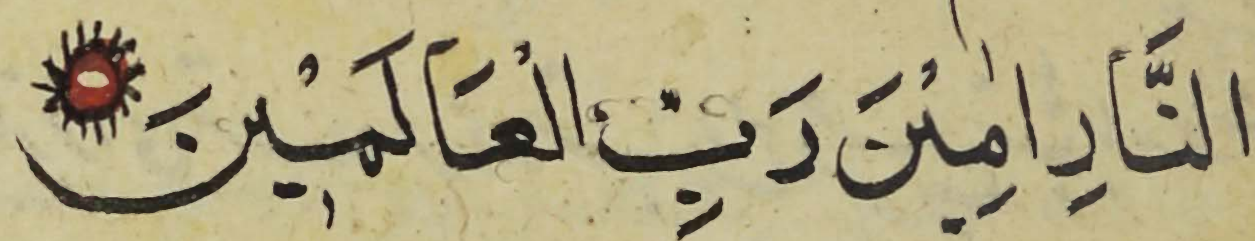 النَّارِ اٰمِيْنَ رَبِّ الْعَالَمِيْنَ